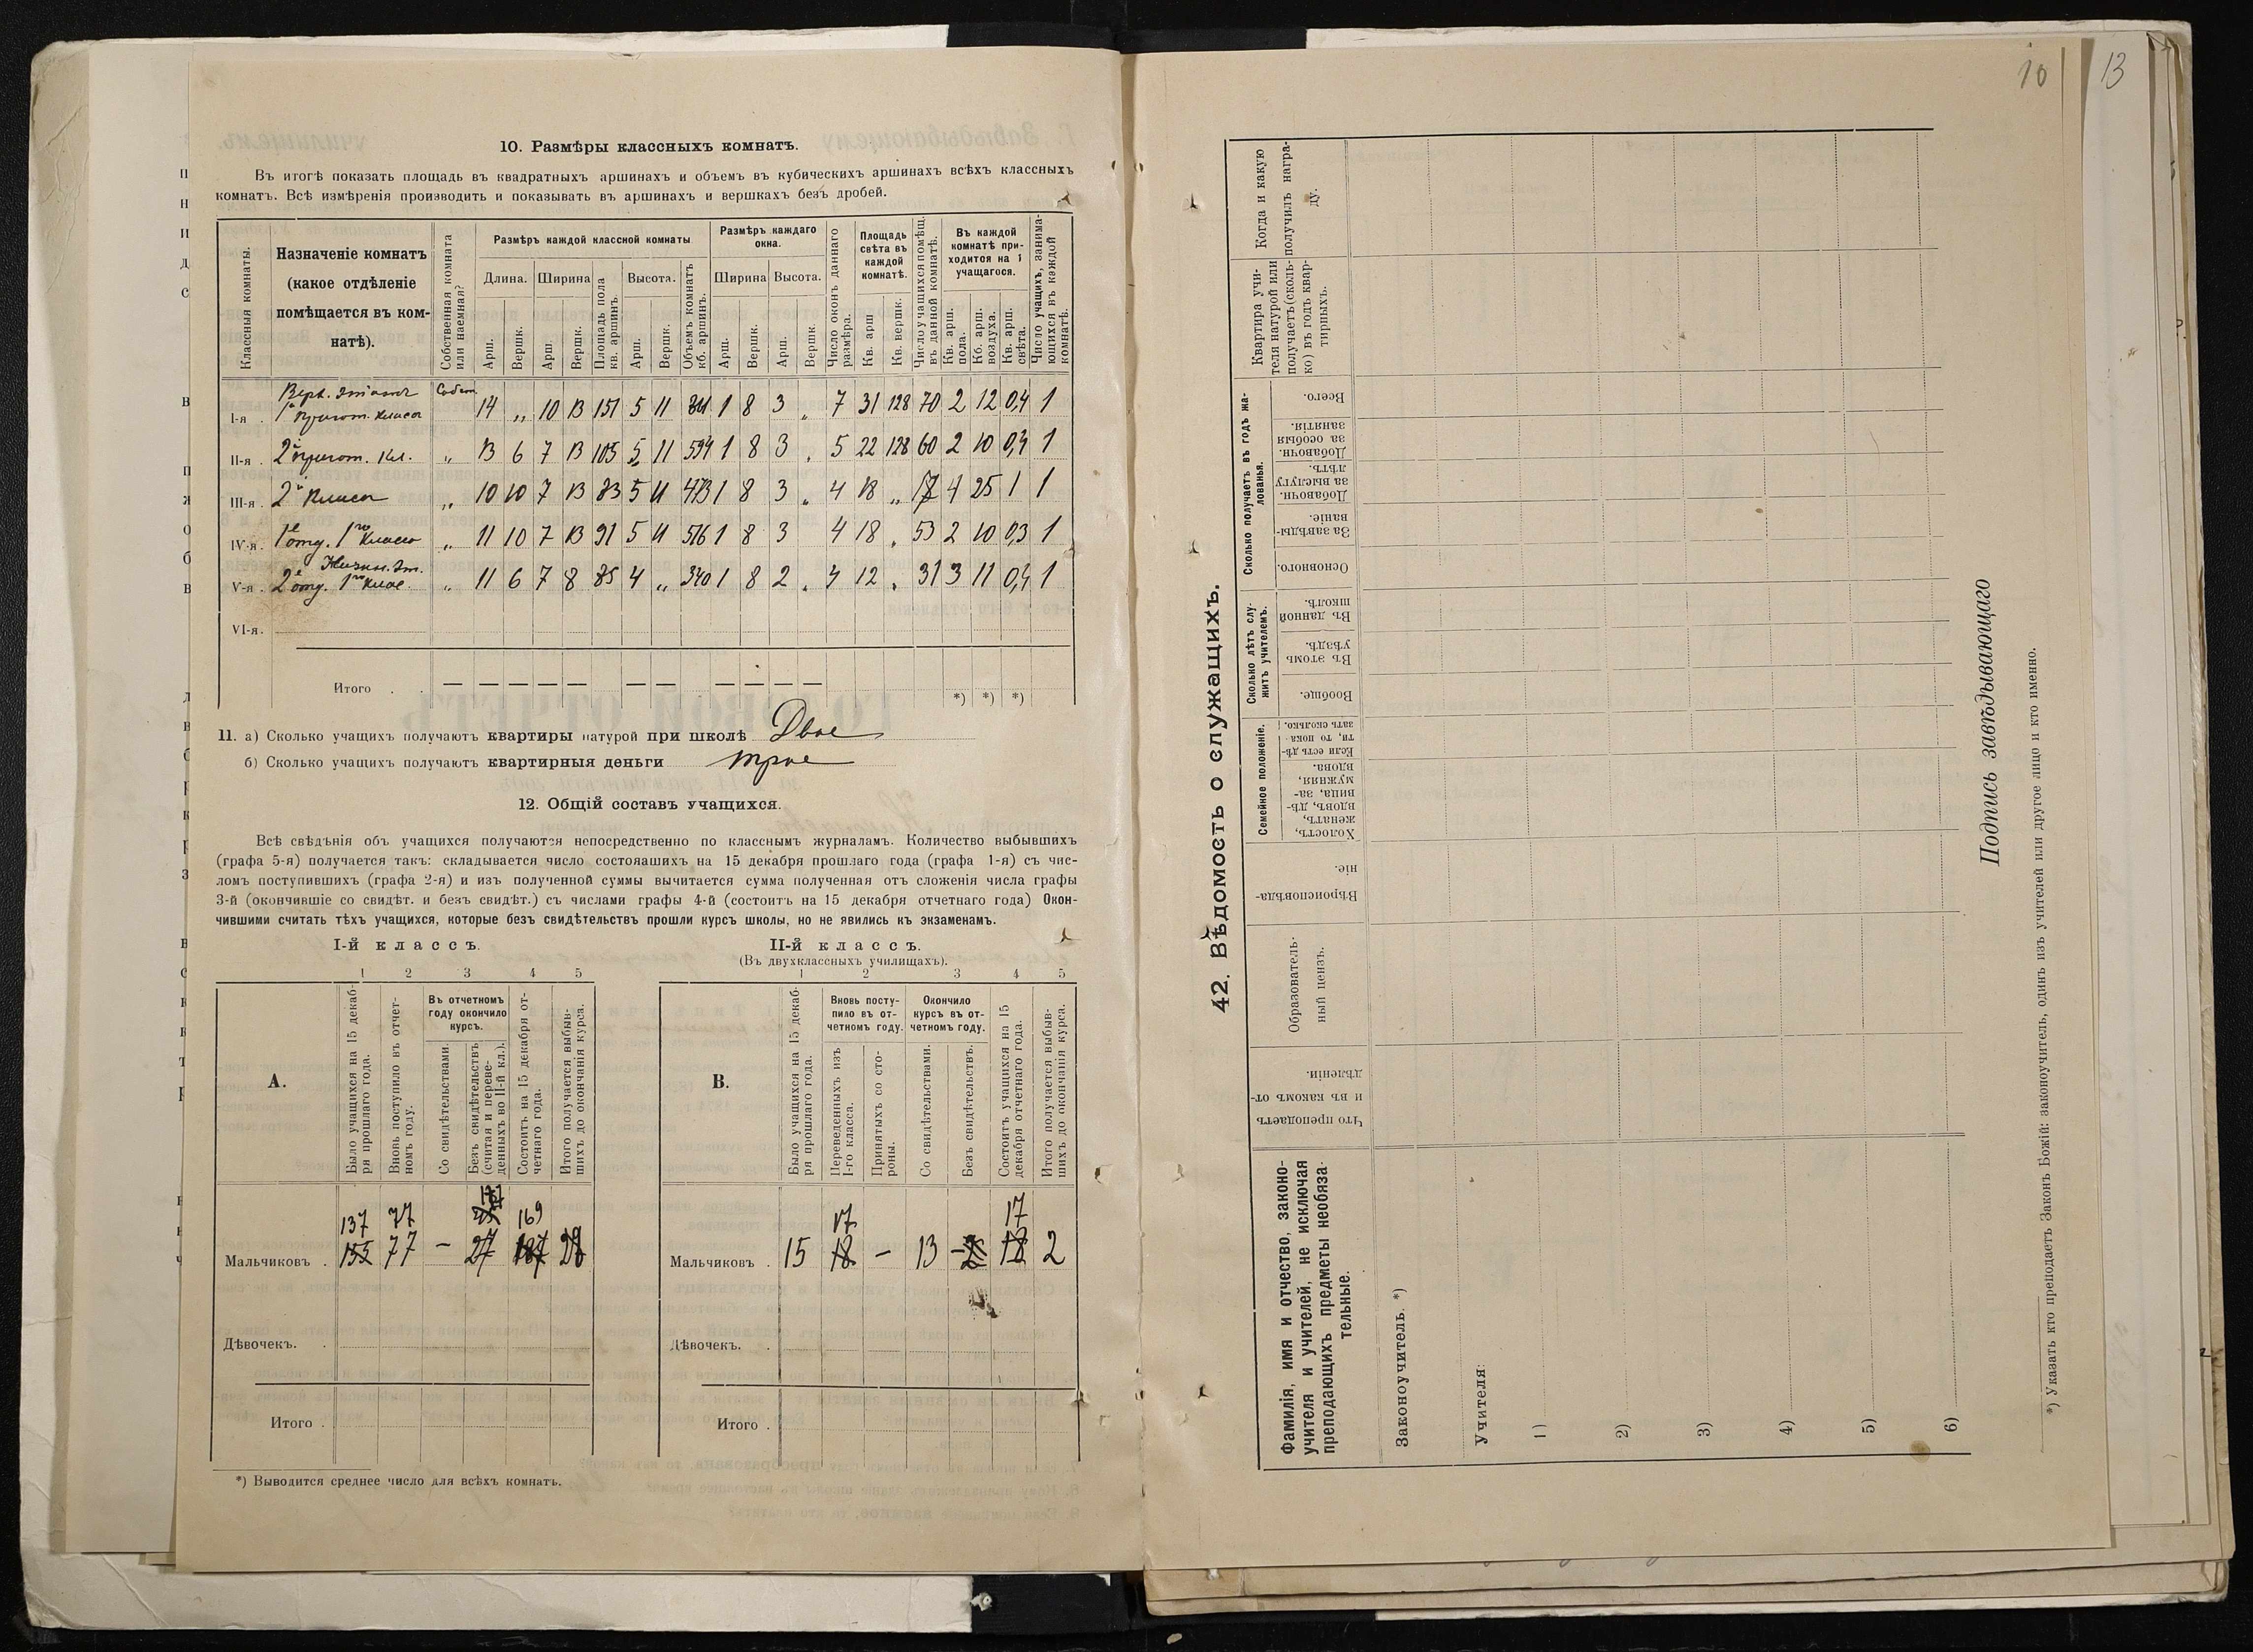 10. Размѣры классныхъ комнатъ.
Въ итогѣ показать площадь въ квадратныхъ аршинахъ и объемъ въ кубическихъ аршинахъ всѣхъ классныхъ
комнатъ. Всѣ измѣренія производить и показывать въ аршинахъ и вершкахъ безъ дробей.
Классныя комнаты.
Назначеніе комнатъ
(какое отдѣленіе
помѣщается въ ком-
натѣ).
Собственная комната
или наемная?
Размѣръ каждой классной комнаты
Длина. Ширина Высота.
Арш. Вершк. Арш. Вершк. Площадь пола кв. аршинъ. Арш. Вершк. Объемъ комнатъ кб. аршинъ.
Размѣръ каждаго
окна.
Ширина Высота.
Арш. Вершк. Арш. Вершк.
Число оконъ даннаго
размѣра.
Площадь
свѣта въ
каждой
комнатѣ.
Кв. арш Кв. вершк.
Число учащихся помѣщ.
въ данной комнатѣ.
Въ каждой
комнатѣ при-
ходится на 1
учащагося.
Кв. арш. пола. Кб. арш. воздуха. Кв. арш. свѣта.
Число учащихъ, занима-
ющихся въ каждой
комнатѣ.
Верх. этажъ Собст.
I-я . 1е пригот. класса 14 „ 10 13 151 5 11 1 8 3 „ 7 31 128 70 2 12 0,4 1
II-я . 2е пригот. кл. „ 13 6 7 13 105 5 11 594 1 8 3 „ 5 22 128 60 2 10 0,4 1
III-я . 2й класса „ 10 10 7 13 83 5 11 473 1 8 3 „ 4 18 „ 17 4 25 1 1
IV-я . 1е отд. 1го класса „ 11 10 7 13 91 5 11 516 1 8 3 4 18 „ 53 2 10 0,3 1
Нижн. эт.
V-я . 2е отд. 1го клас. „ 11 6 7 8 85 4 „ 340 1 8 2 „ 4 12 „ 31 3 11 0,4 1
VI-я .
Итого . . — — — — — — — — — — — *) *) *)
11. а) Сколько учащихъ получаютъ квартиры натурой при школѣ Двое
б) Сколько учащихъ получаютъ квартирныя деньги трое
12. Общій составъ учащихся.
Всѣ свѣдѣнія объ учащихся получаются непосредственно по класснымъ журналамъ. Количество выбывшихъ
(графа 5-я) получается такъ: складывается число состоящихъ на 15 декабря прошлаго года (графа 1-я) съ чис-
ломъ поступившихъ (графа 2-я) и изъ полученной суммы вычитается сумма полученная отъ сложенія числа графы
3-й (окончившіе со свидѣт. и безъ свидѣт.) съ числами графы 4-й (состоитъ на 15 декабря отчетнаго года) Окон-
чившими считать тѣхъ учащихся, которые безъ свидѣтельствъ прошли курсъ школы, но не явились къ экзаменамъ.
I-й классъ.
1 2 3 4 5
А.
Было учащихся на 15 декаб-
ря прошлаго года.
Вновь поступило въ отчет-
номъ году.
Въ отчетномъ
году окончило
курсъ.
Со свидѣтельствами.
Безъ свидѣтельствъ
(считая и переве-
денныхъ во II-й кл.).
Состоитъ на 15 декабря от-
четнаго года.
Итого получается выбыв-
шихъ до окончанія курса.
137 77 169
Мальчиковъ . 155 77 — 27 187
Дѣвочекъ. .
Итого .
II-й классъ.
(Въ двухклассныхъ училищахъ).
1 2 3 4 5
В.
Было учащихся на 15 декаб-
ря прошлаго года.
Вновь посту-
пило въ от-
четномъ году.
Переведенныхъ изъ
I-го класса.
Принятыхъ со сто-
роны.
Окончило
курсъ въ от-
четномъ году.
Со свидѣтельствами.
Безъ свидѣтельствъ.
Состоитъ учащихся на 15
декабря отчетнаго года.
Итого получается выбыв-
шихъ до окончанія курса.
17 17
Мальчиковъ . 15 18 — 13 — 18 2
Дѣвочекъ. .
Итого .
*) Выводится среднее число для всѣхъ комнатъ.
10
13
42. Вѣдомость о служащихъ.
Фамилія, имя и отчество, законо-
учителя и учителей, не исключая
преподающихъ предметы необяза-
тельные.
Что преподаетъ
и въ какомъ от-
дѣленіи.
Образователь-
ный цензъ.
Вѣроисповѣда-
ніе.
Семейное положеніе.
Холостъ,
женатъ,
вдовъ, дѣ-
вица, за-
мужняя,
вдова.
Если есть дѣ-
ти, то пока
зать сколько.
Сколько лѣтъ слу-
житъ учителемъ.
Вообще.
Въ этомъ
уѣздѣ.
Въ данной
школѣ.
Сколько получаетъ въ годъ жа-
лованья.
Основного.
За завѣды-
ваніе.
Добавочн.
за выслугу
лѣтъ.
Добавочн.
за особыя
занятія.
Всего.
Квартира учи-
теля натурой или
получаетъ (сколь-
ко) въ годъ квар-
тирныхъ.
Когда и какую
получилъ награ-
ду.
Законоучитель. *)
Учителя:
1)
2)
3)
4)
5)
6)
Подпись завѣдывающаго
*) Указать кто преподаетъ Законъ Божій: законоучитель, одинъ изъ учителей или другое лицо и кто именно.